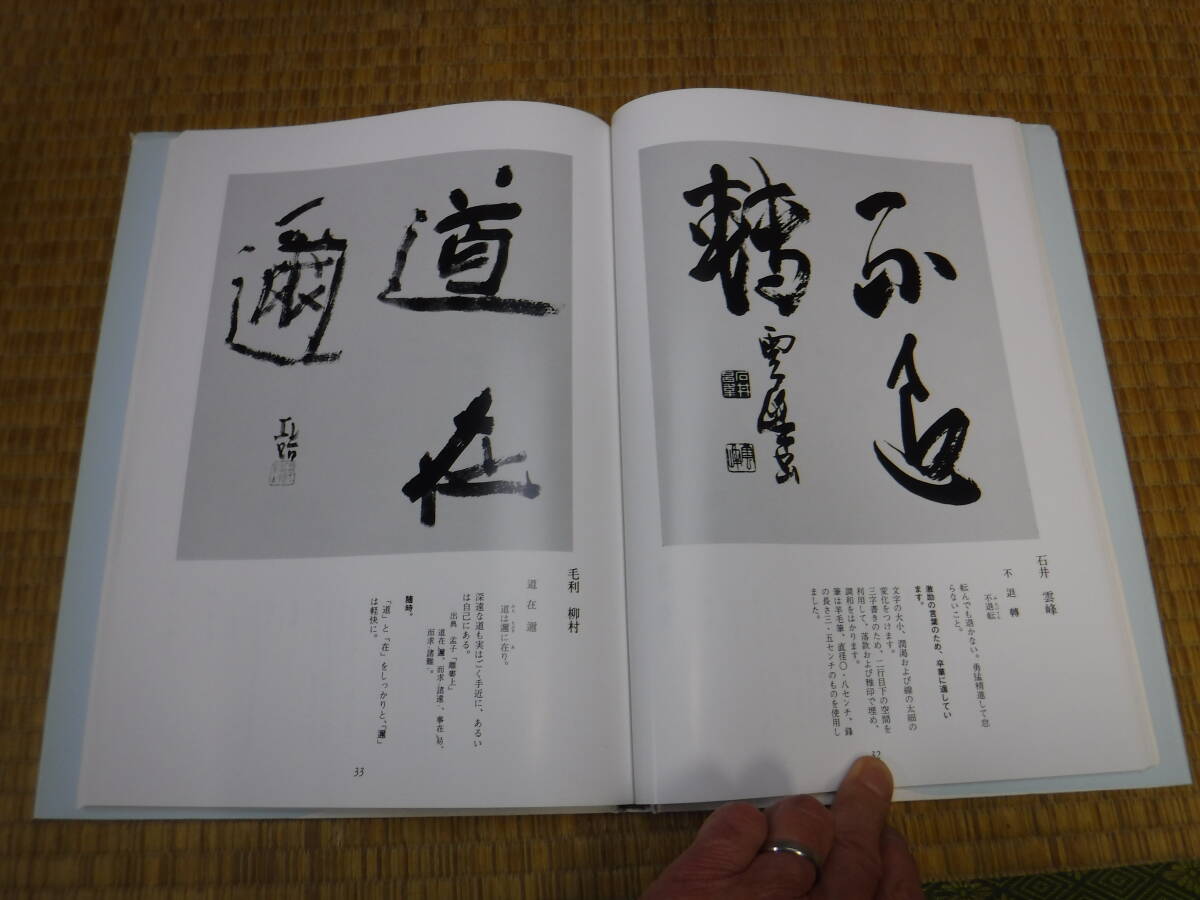 不退
轉
雲峰
石井 雲峰
不退轉
ふたいてん
不退転
転んでも退かない。勇猛精進して怠
らないこと。
激励の言葉のため、卒業に適してい
ます。
文字の大小、潤渇および線の太細の
変化をつけます。
三字書きのため、二行目下の空間を
利用して、落款および雅印で埋め、
調和をはかります。
筆は羊毛筆、直径〇・八センチ、鋒
の長さ三・五センチのものを使用し
ました。
32
道在
邇
毛利 柳村
道在邇
道は邇に在り。
深遠な道も実はごく手近に、あるい
は自己にある。
出典 孟子「離婁上」
道在邇、而求諸遠、事在易、
而求諸難。
随時。
「道」と「在」をしっかりと、「邇」
は軽快に。
33